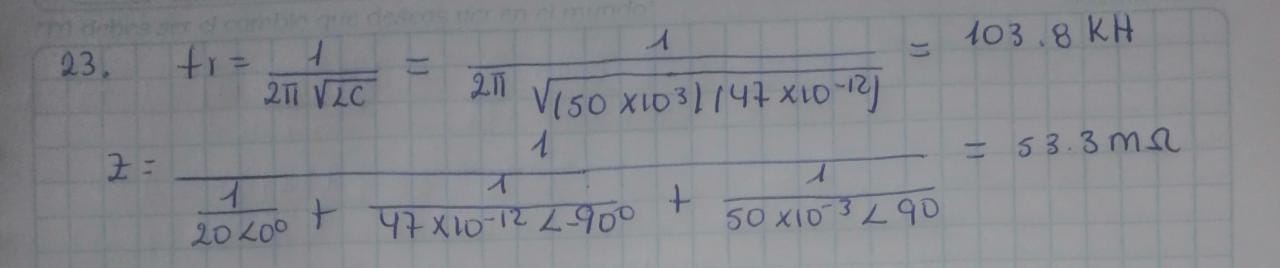 m debes ser el cambio que deseas ver en el mundo
23. fr = 1 / 2π √LC = 1 / 2π √(50 x10³)(47 x10⁻¹²) = 103.8 KH
Z = 1 / (1 / 20<0⁰ + 1 / 47x10⁻¹² <-90⁰ + 1 / 50x10⁻³ <90) = 53.3 mΩ